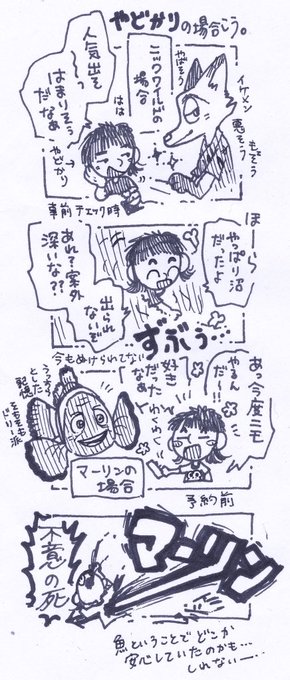 やどかりの場合じう。
人気出そう
はまりそう
だなぁ
ニックワイルドの
場合
イケメン
悪そう
もてそう
はは
やどかり
事前チェック時
ほーら
やっぱり沼
だったよ
あれ?案外
深いな??
出られ
ないぞ
ずぶぅ…
今もぬけられてない
あっ今度ニモ
やるんだー!!
好き
だった
なぁ
わくわく
マーリンの
場合
予約前
マーリン
不意の死
魚ということでどこか
安心していたのかも…
しれない―…